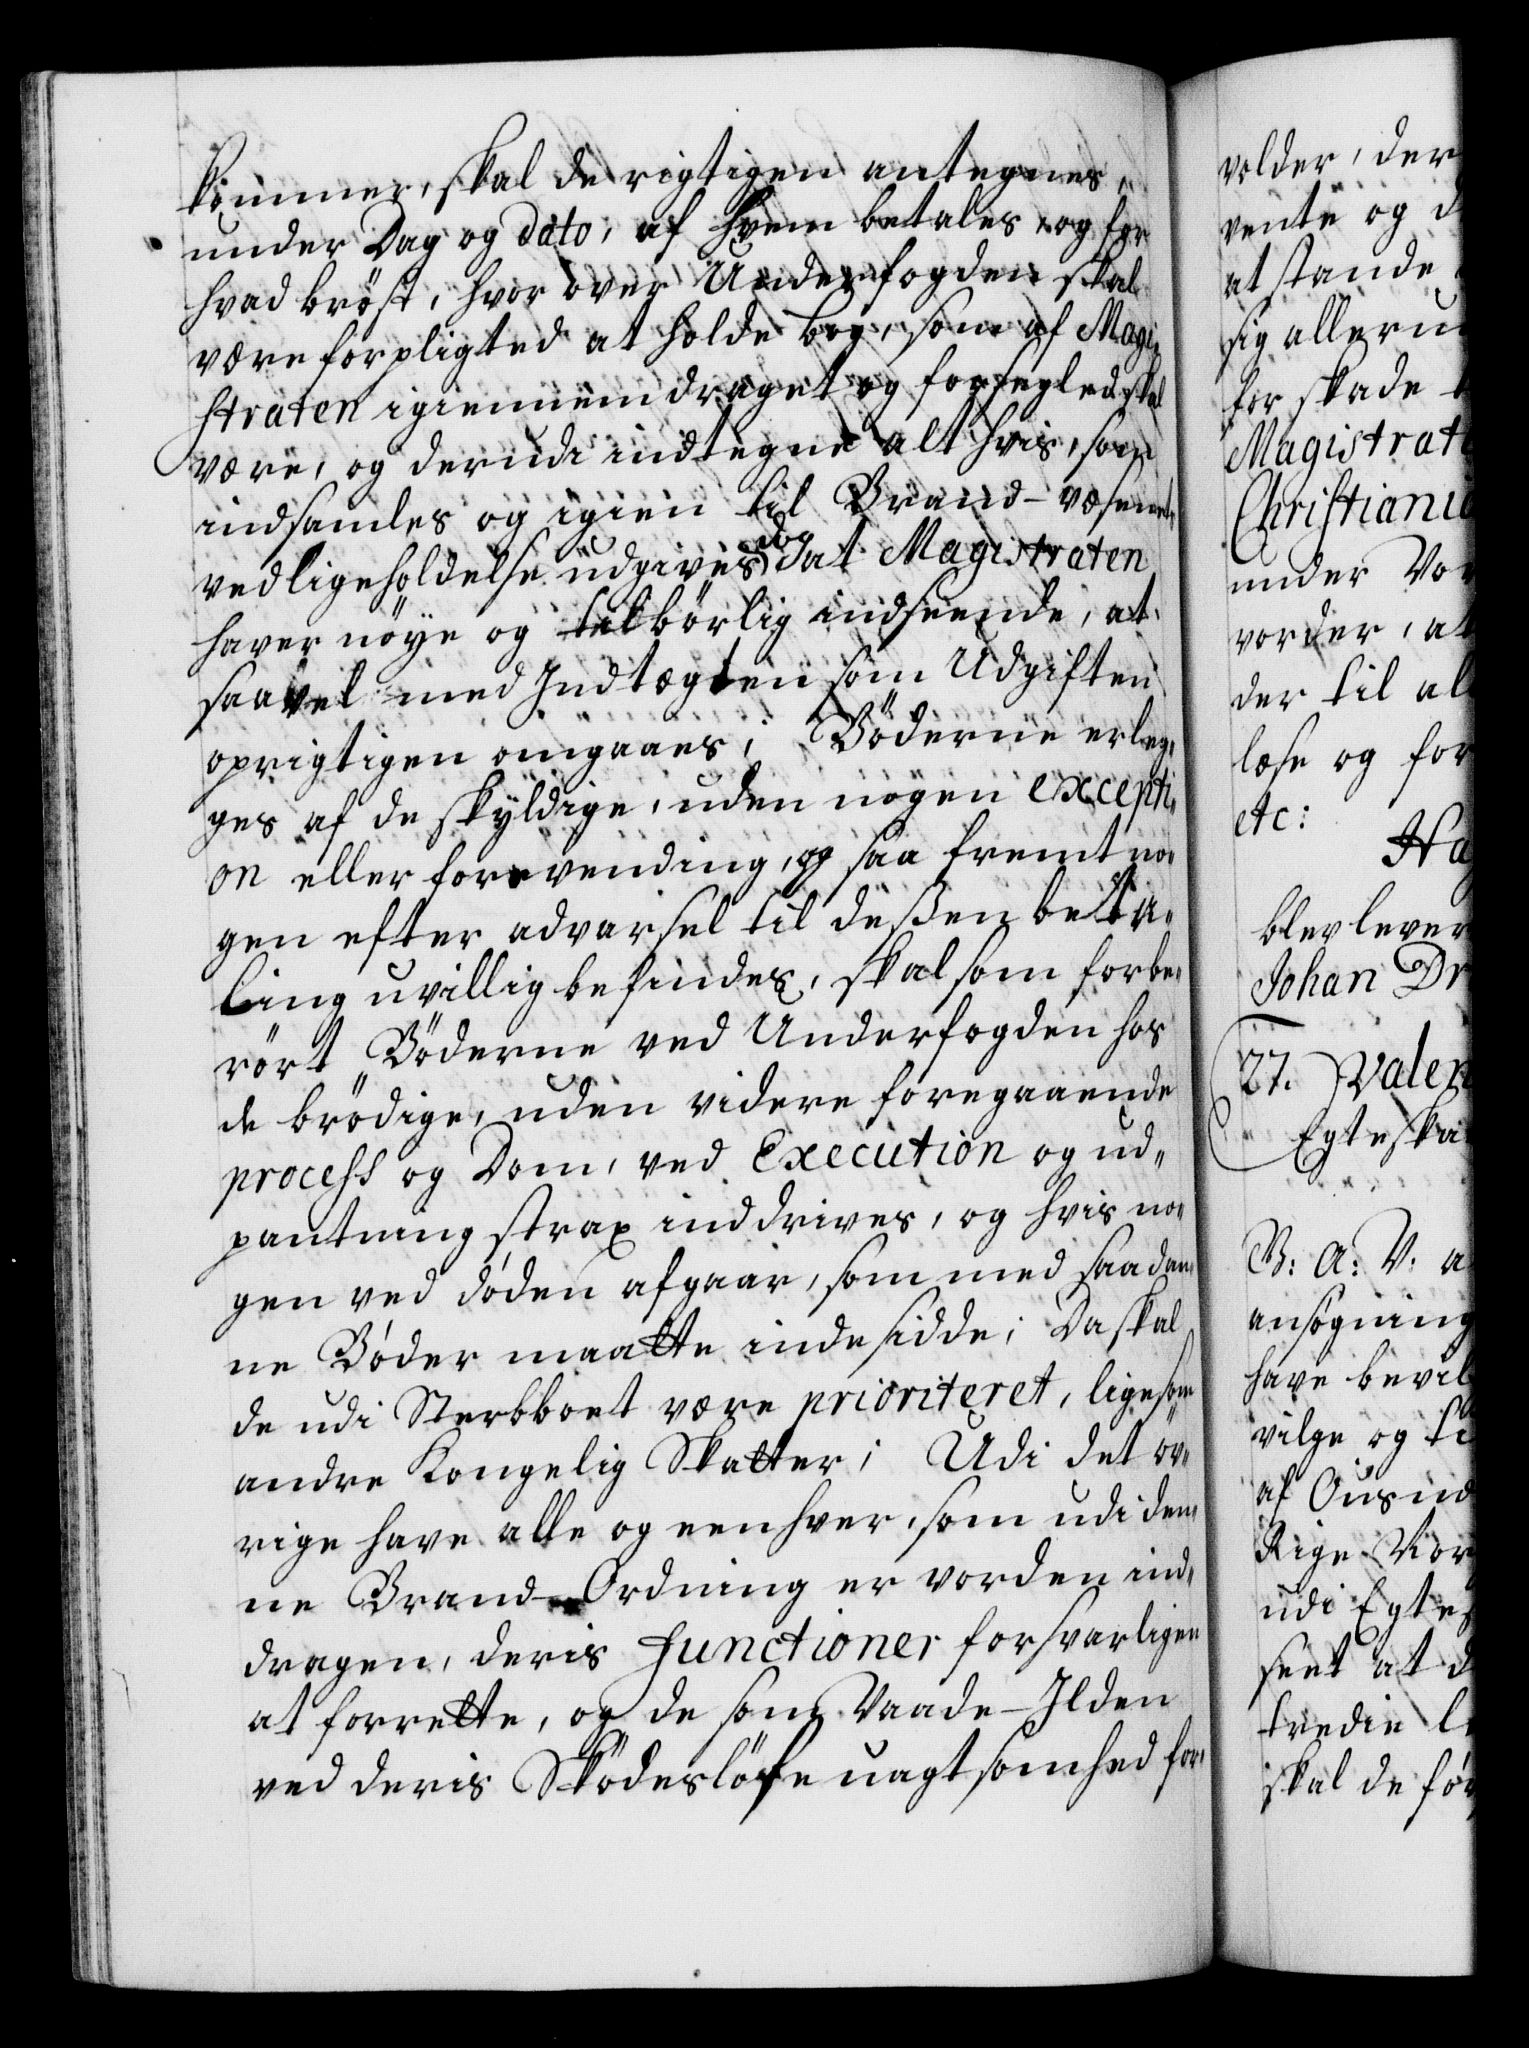 kommer, skal de rigtigen antegnes,
under Dag og dato, af hvem betales og for
hvad bröst, hvor over Underfogden skal
være forpligted at holde bog, som af Magi-
straten igiennemdraget og forsegled skal
være, og derudi indtegne alt hvis, som
indsamles og igien til Brand-væsenets
vedligeholdelse udgives, dog
at Magistraten
haver nöye og tilbörlig indseende, at
saavel med Indtægten som Udgiften
oprigtigen omgaaes; Böderne erleg-
ges af de skyldige, uden nogen excepti-
on eller forevending, og saa fremt no-
gen efter advarsel til deßen beta-
ling uvillig befindes, skal som forbe-
rört Böderne ved Underfogden hos
de brödige, uden videre foregaaende
process og Dom, ved Execution og ud-
pantning strax inddrives, og hvis no-
gen ved döden afgaar, som med saadan-
ne Böder maatte indesidde; Da skal
de udi Sterbboet være prioriteret, ligesom
andre Kongelig Skatter; Udi det öv-
rige have alle og eenhver, som udi den-
ne Brand-Ordning er vorden ind-
dragen, deris Functioner forsvarligen
at forrette, og de som Vaade-Ilden
ved deris Sködeslöse uagtsomhed for-
volder, der
vente og d
at stande
sig alleru
for skade
Magistrat
Christiani
under Vor
vorder, at
der til al
læse og for
etc:
blev lever
Johan Dr
27. Valen
Egteska
V: A: V: a
ansögning
have bevil
vilge og ti
af Ousind
Rige Nor
udi Egtes
seet at d
tredie l
skal de för